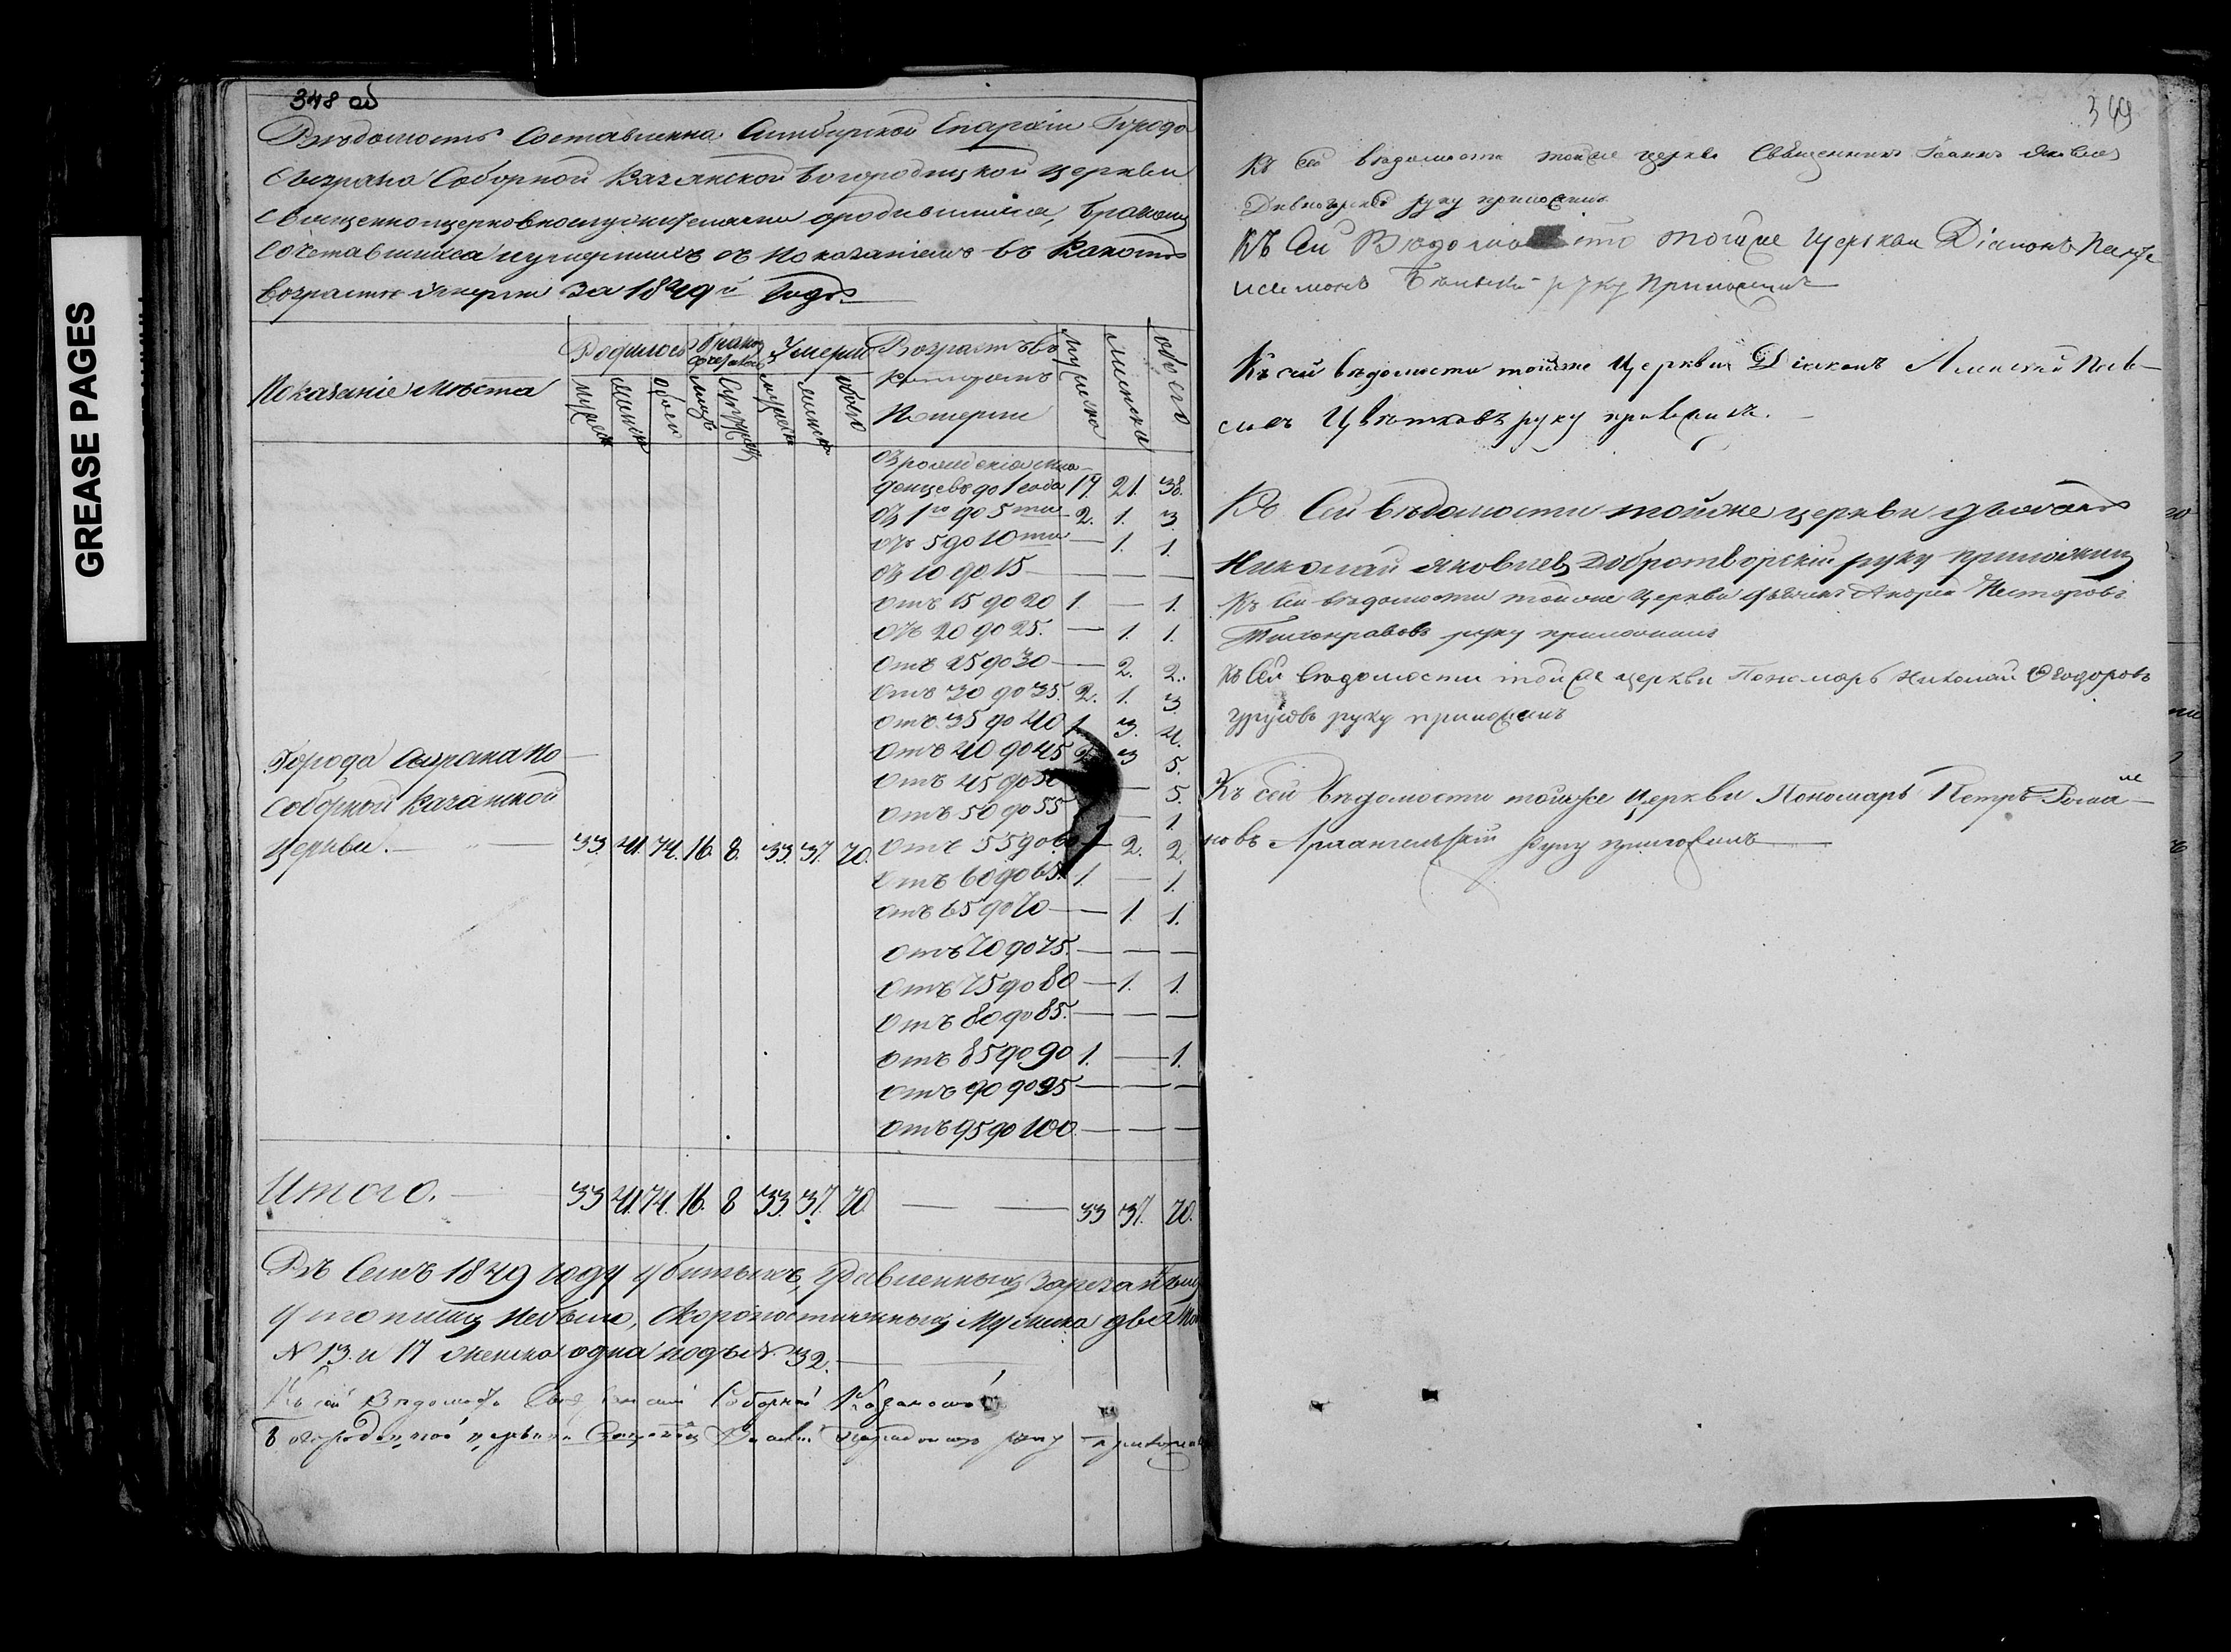 GREASE PAGES
348 об
Вѣдомость Составленна Симбирской Епархіи Города
Сызрана Соборной Казанской Богородицкой церкви
Священноцерковнослужителями о родившихся, бракомъ
сочетавшихся и умершихъ съ показаніемъ въ какомъ
возрастѣ умерли За 1849й Годъ
Показаніе мѣста
Родилось
Бракомъ сочеталось
Умерло
Возрастъ въ
которомъ
Померли
мужеска
женска
обоего
мужеска
женска
обоего
мужеска
женска
обоего
отъ рожденія мла-
денцевъ до 1 года 17. 21. 38.
отъ 1го до 5ти 2. 1. 3.
отъ 5 до 10ти — 1. 1.
отъ 10 до 15 — — —
отъ 15 до 20 1. — 1.
отъ 20 до 25. — 1. 1.
отъ 25 до 30 — 2. 2.
отъ 30 до 35. 2. 1. 3
отъ 35 до 40 1. 3. 4.
отъ 40 до 45 2. 3 5.
отъ 45 до 50 — 5.
отъ 50 до 55 — 1.
Города Сызрана по
Соборной Казанской
церкви. — 33. 41. 74. 16. 8. 33. 37. 70. отъ 55 до 60 — 2. 2.
отъ 60 до 65. 1. — 1.
отъ 65 до 70 — 1. 1.
отъ 70 до 75. — — —
отъ 75 до 80 — 1. 1.
отъ 80 до 85. — — —
отъ 85 до 90 1. — 1.
отъ 90 до 95 — — —
отъ 95 до 100 — — —
Итого. — 33 41. 74. 16. 8 33. 37. 70. — — 33 37. 70.
Въ семъ 1849 году убитыхъ, удавленныхъ, зарезанныхъ
утопшихъ небыло, скоропостижныхъ мужеска двое
N 13. и 17 женска одна подъ N. 32.
Къ сей Вѣдомости Соборной Казанской
Богородицкой церкви руку приложилъ
349
Къ сей вѣдомости тойже церкви Священникъ Іоаннъ Яковлевъ
руку приложилъ
Къ сей Вѣдомости тойже Церкви Діаконъ
руку приложилъ
Къ сей вѣдомости тойже Церкви Діаконъ Алексей Пав-
ловъ Цвѣтковъ руку приложилъ.
Къ сей вѣдомости тойже церкви дьячокъ
Николай Яковлевъ Добротворскій руку приложилъ
Къ сей вѣдомости тойже Церкви дьячекъ Андрей Несторовъ
Тихонравовъ руку приложилъ
Къ сей вѣдомости тойже церкви Пономарь Николай Ѳеодоровъ
руку приложилъ
Къ сей Вѣдомости тойже Церкви Пономарь Петръ Рома-
новъ Архангельскій руку приложилъ